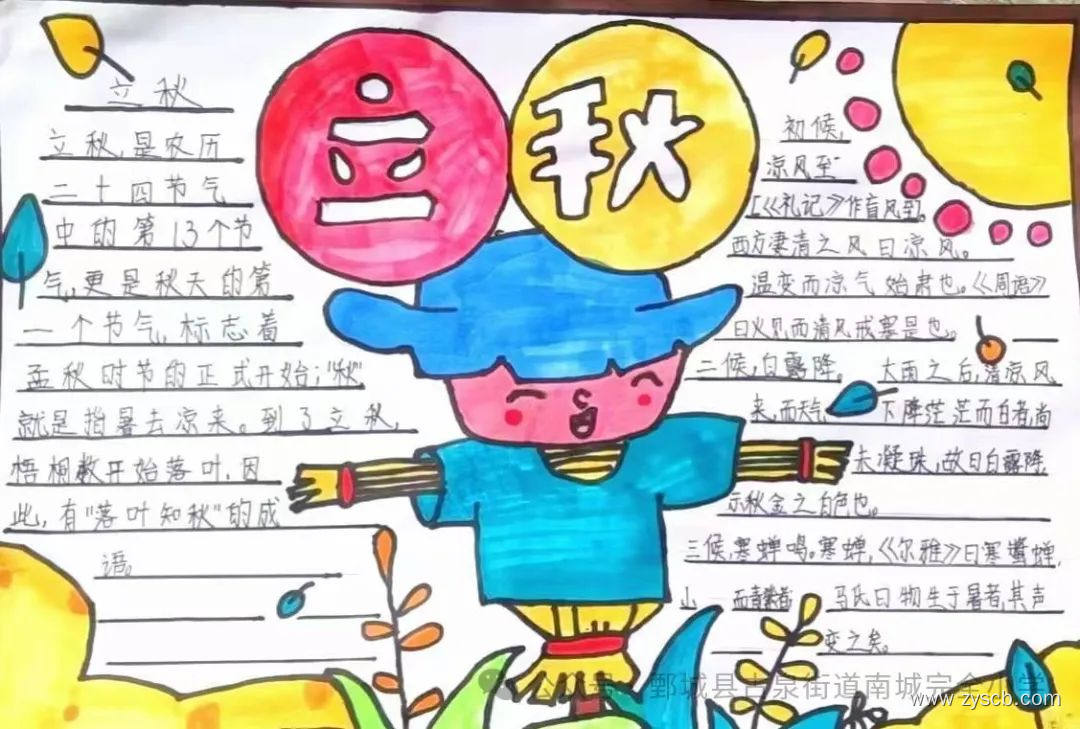 立秋
立秋
立秋,是农历
二十四节气
中的第13个节
气,更是秋天的第
一个节气,标志着
孟秋时节的正式开始;"秋"
就是指暑去凉来。到了立秋,
梧桐树开始落叶,因
此,有"落叶知秋"的成
语。
初候,
凉风至
[《礼记》作盲风至]。
西方凄清之风曰凉风。
温变而凉气始肃也。《周语》
曰火见而清风戒寒是也。
二候,白露降。大雨之后,清凉风
来,而天气下降茫茫而白者,尚
未凝珠,故曰白露降,
示秋金之白色也。
三候,寒蝉鸣。寒蝉,《尔雅》曰寒螀蝉,
小而青紫者 马氏曰物生于暑者,其声
变之矣。
公众号 鄄城县古泉街道南城完全小学
www.zyscb.com